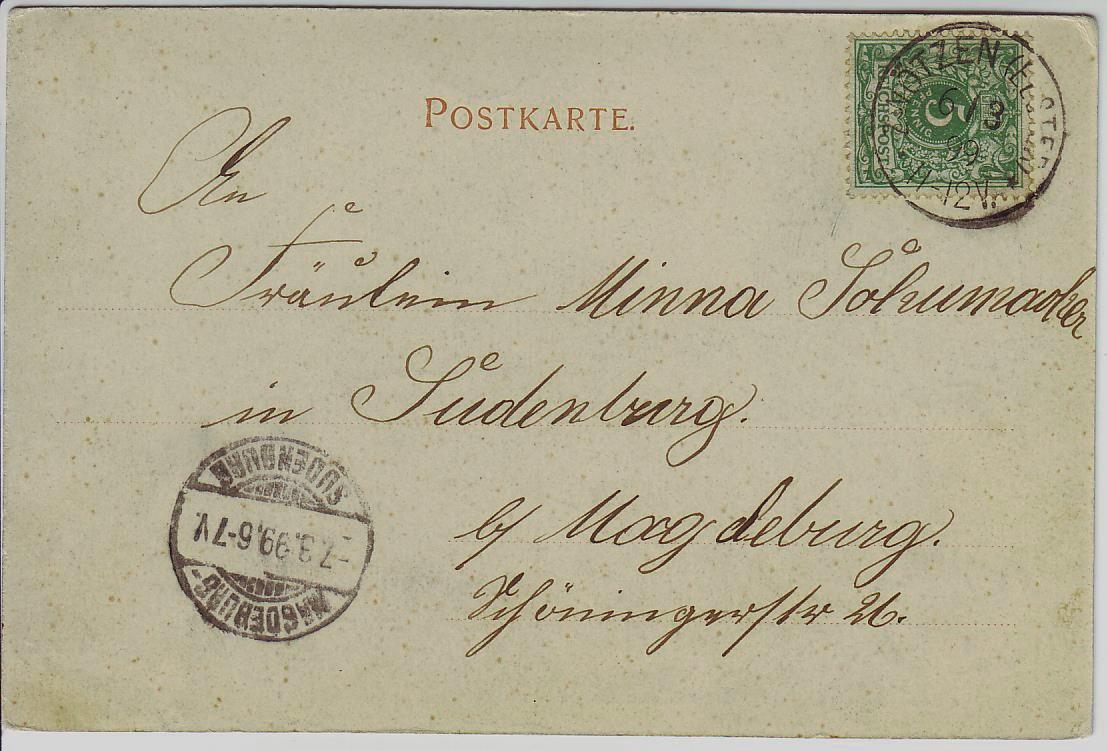 POSTKARTE.
6/3
99
11-12V.
REICHSPOST
5
PFENNIG
An
Fräulein Minna Schumacher
in Sudenburg.
b/ Magdeburg.
Schöningerstr 26.
MAGDEBURG-
-7.3.99.6-7V.
SUDENBURG